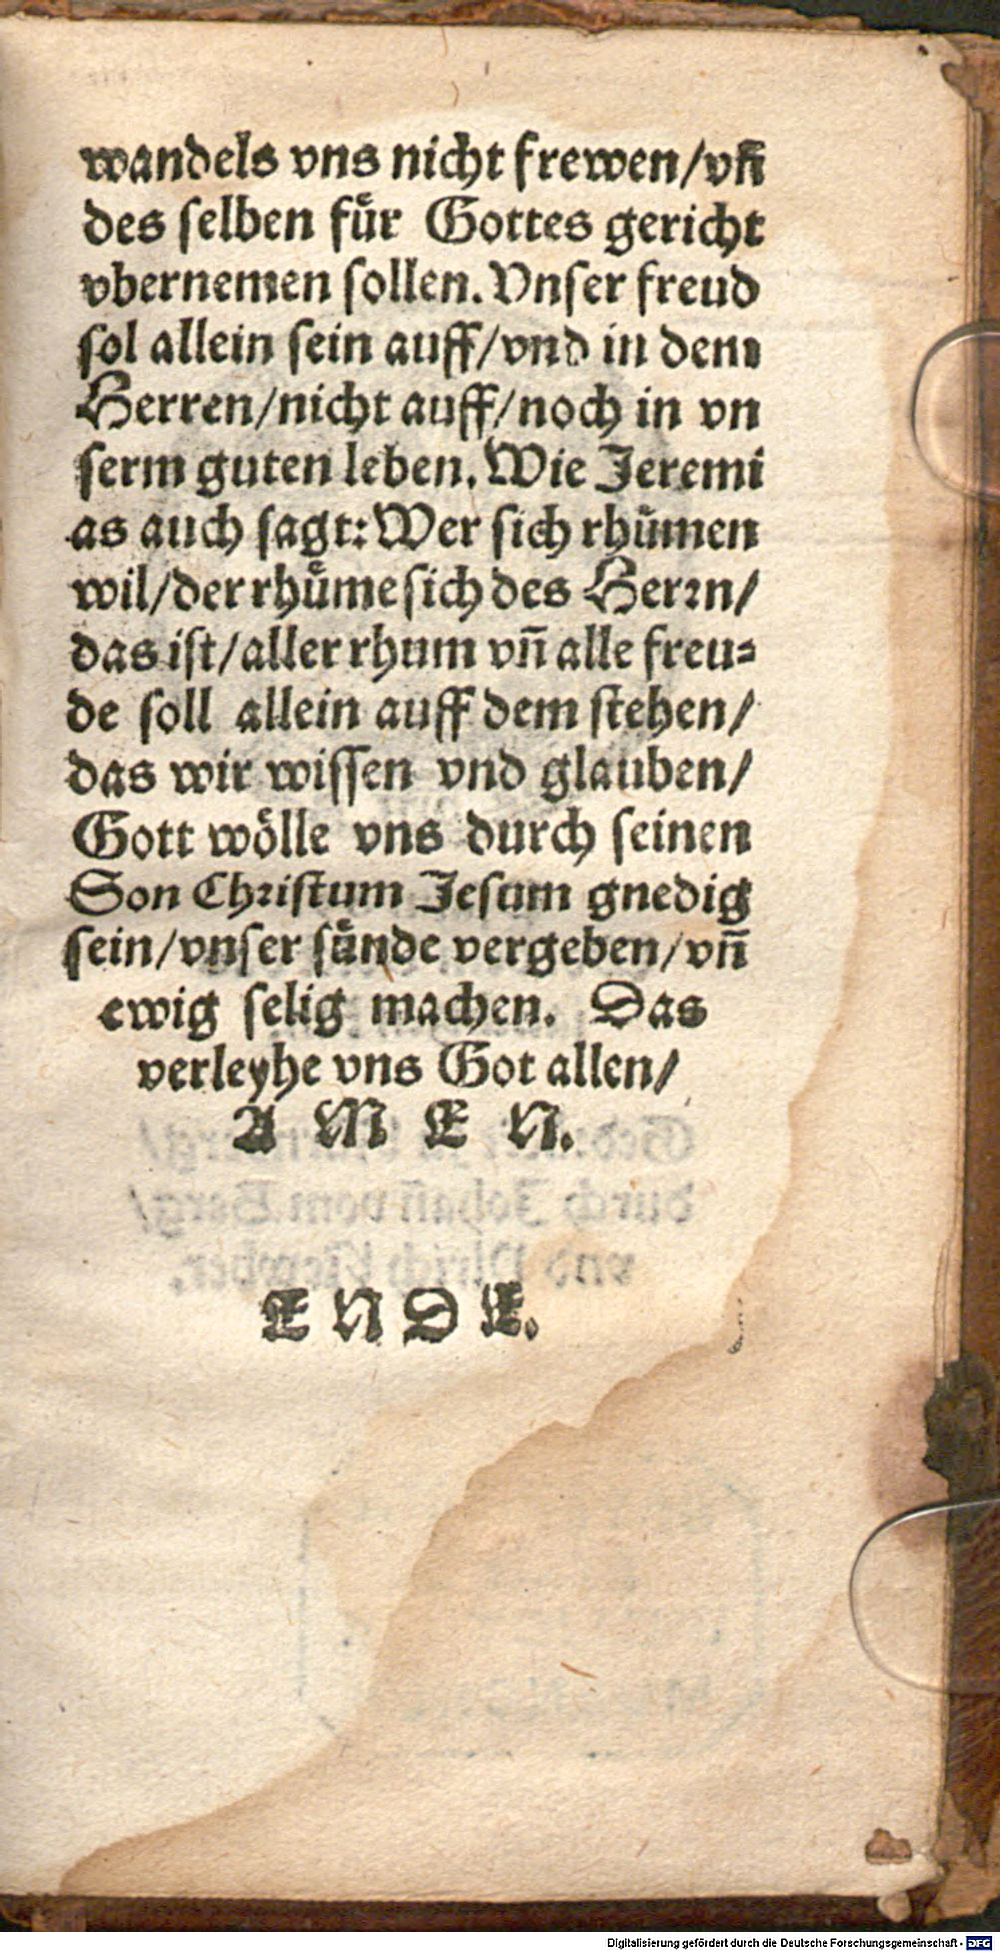 wandels vns nicht frewen/vñ
des selben fuͤr Gottes gericht
vbernemen sollen. Vnser freud
sol allein sein auff/vnd in dem
Herren/nicht auff/noch in vn
serm guten leben. Wie Jeremi
as auch sagt: Wer sich rhuͤmen
wil/der rhuͤme sich des Herrn/
das ist/aller rhum vñ alle freu⸗
de soll allein auff dem stehen/
das wir wissen vnd glauben/
Gott woͤlle vns durch seinen
Son Christum Jesum gnedig
sein/vnser suͤnde vergeben/vñ
ewig selig machen. Das
verleyhe vns Got allen/
A M E N.
E N D E.
Digitalisierung gefördert durch die Deutsche Forschungsgemeinschaft - DFG